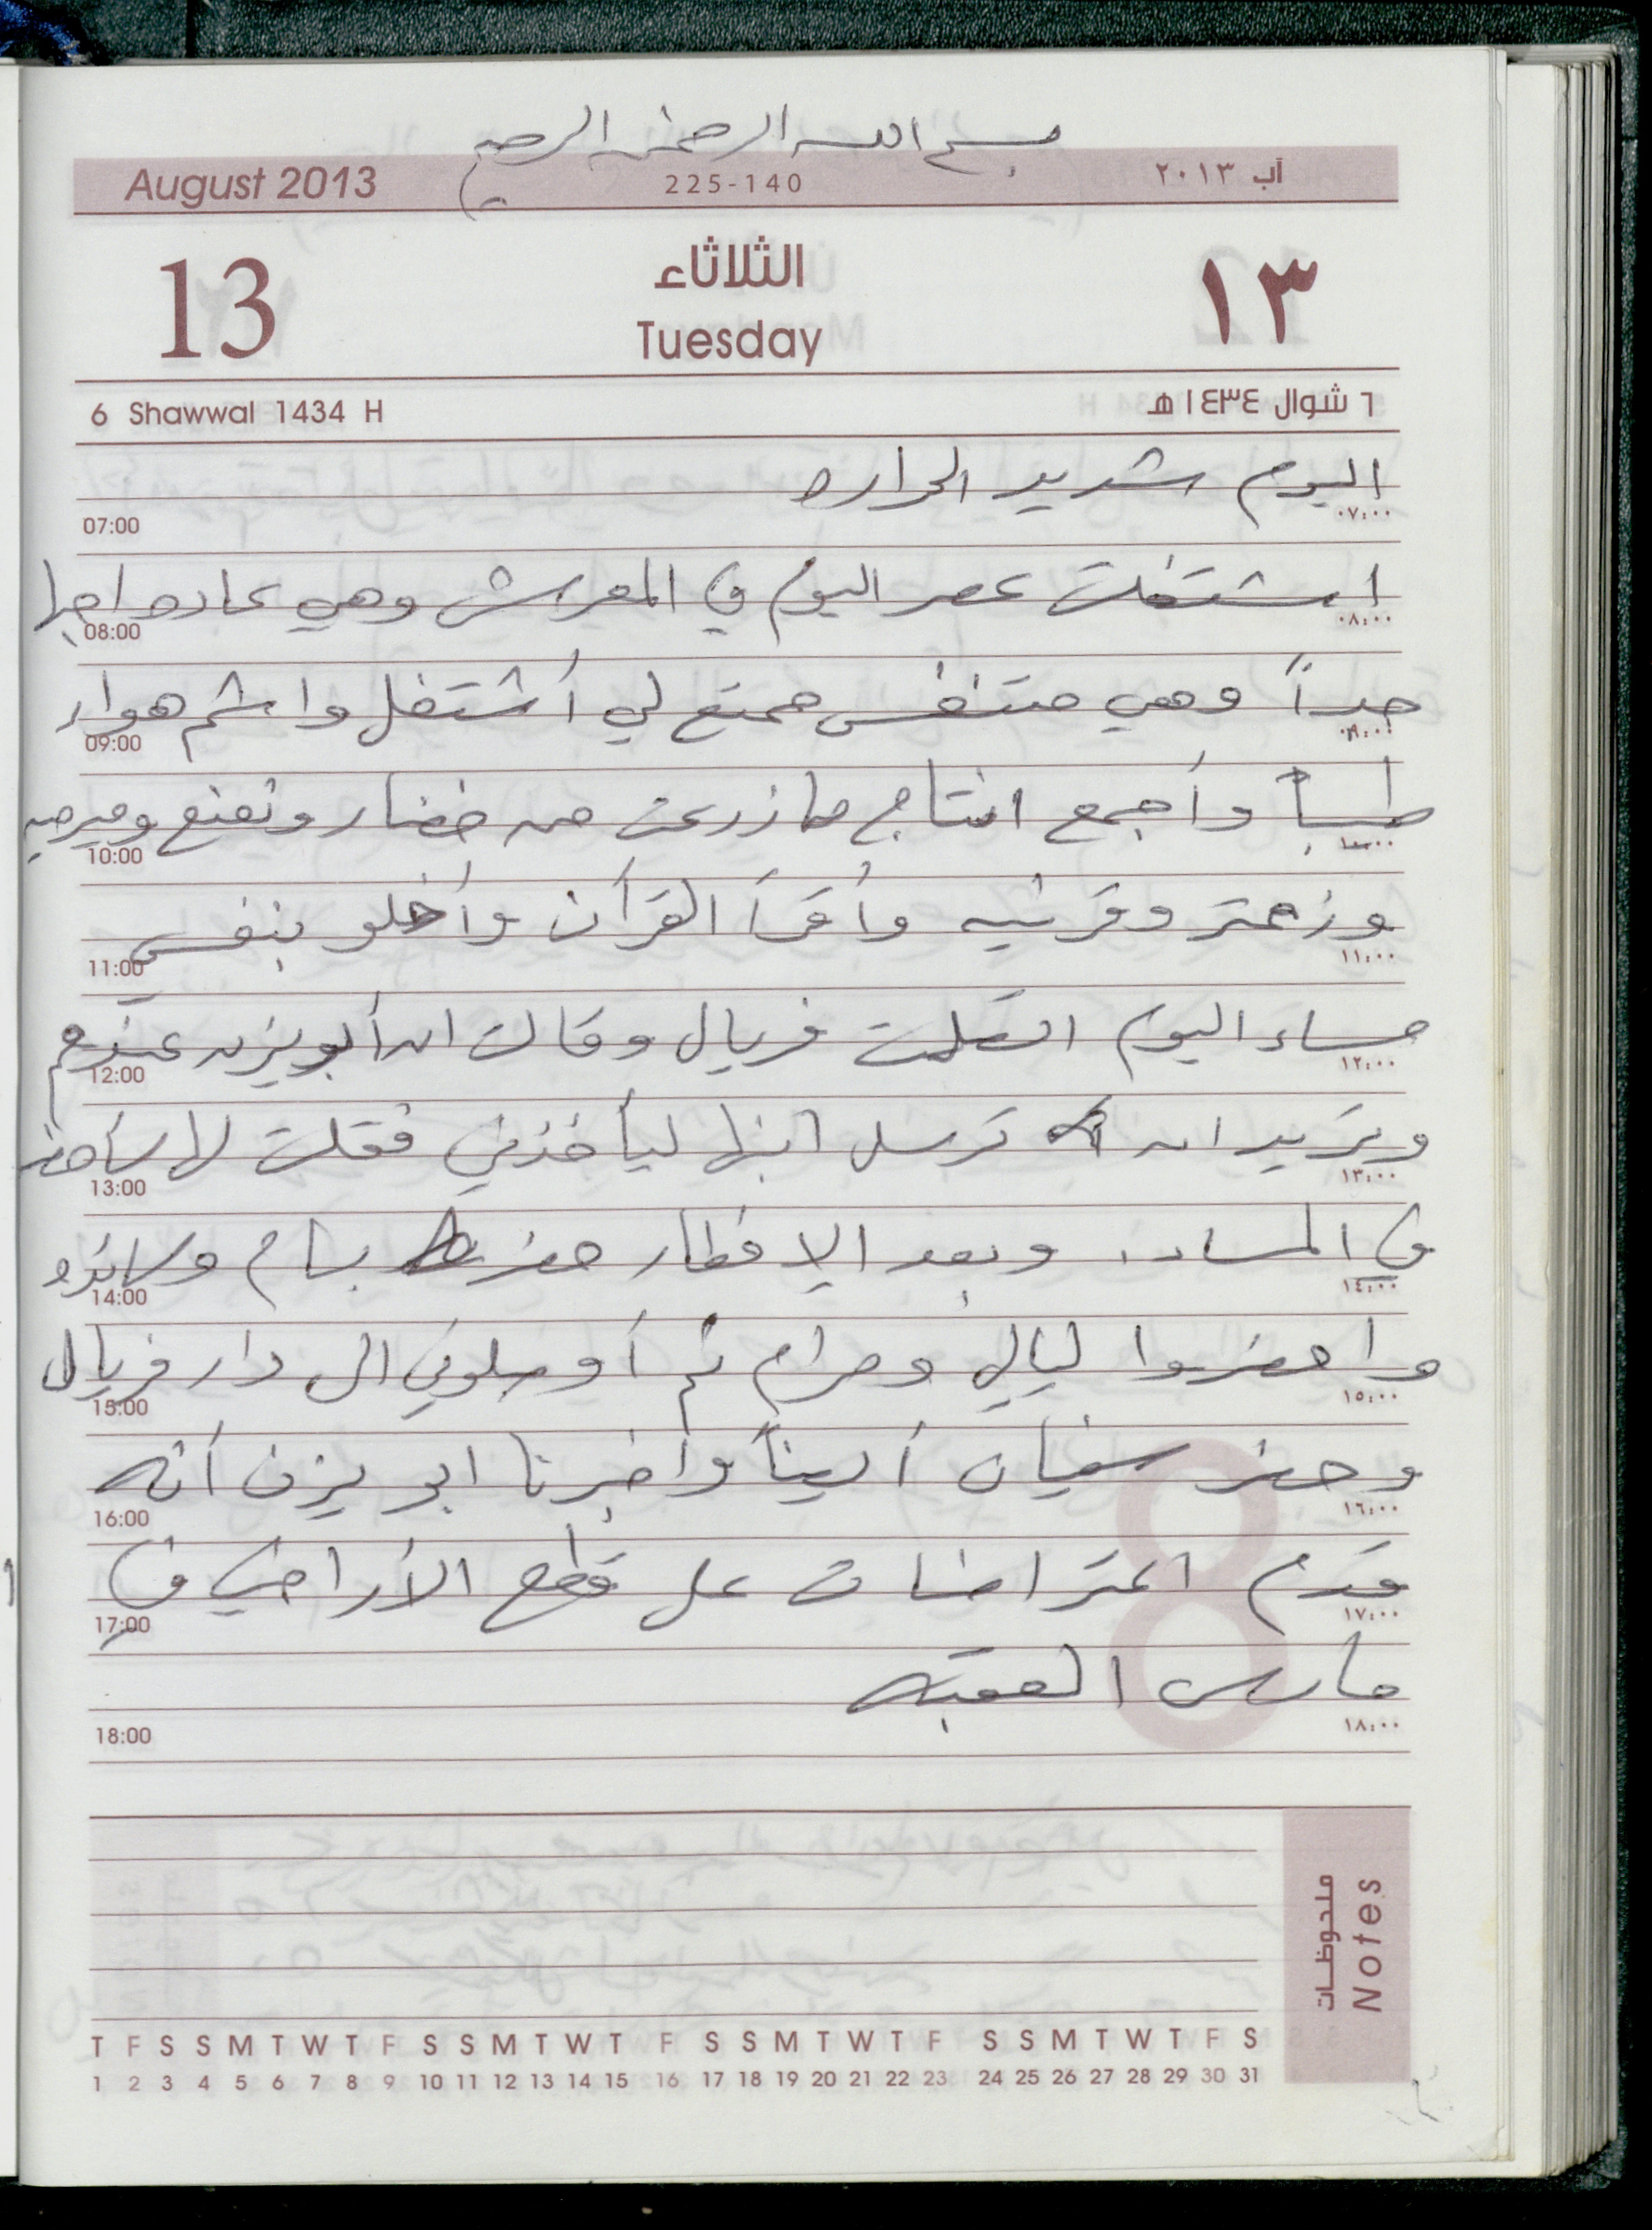 بسم الله الرحمن الرحيم
August 2013 225-140 آب ٢٠١٣
13 الثلاثاء ١٣
Tuesday
6 Shawwal 1434 H ٦ شوال ١٤٣٤ هـ
اليوم شديد الحراره
07:00 ٠٧:٠٠
اشتغلت عصر اليوم في المعرش وهي عاده احبها
08:00 ٠٨:٠٠
جداً وهي متنفس ممتع لي أشتغل واشم هواء
09:00 ٠٩:٠٠
طيباً وأجمع انتاج ما زرعت من خضار ونعنع وميرميه
10:00 ١٠:٠٠
وزعتر وقرنيه وأقرأ القرآن وأخلو بنفسي
11:00 ١١:٠٠
مساء اليوم اتصلت فريال وقالت ان أبو يزن عندهم
12:00 ١٢:٠٠
وتريد ان ترسل ابنها ليأخذني فقلت لها سأحضر
13:00 ١٣:٠٠
في المساء. وبعد الإفطار حضر بسام وسائد
14:00 ١٤:٠٠
واحضروا ليالي ومرام ثم أوصلوني الى دار فريال
15:00 ١٥:٠٠
وحضر سفيان أيضاً وأخبرنا ابو يزن أنه
16:00 ١٦:٠٠
قدم اعتراضات على قطع الأراضي في
17:00 ١٧:٠٠
مارس العقبه
18:00 ١٨:٠٠
8
ملحوظات
Notes
T F S S M T W T F S S M T W T F S S M T W T F S S M T W T F S
1 2 3 4 5 6 7 8 9 10 11 12 13 14 15 16 17 18 19 20 21 22 23 24 25 26 27 28 29 30 31